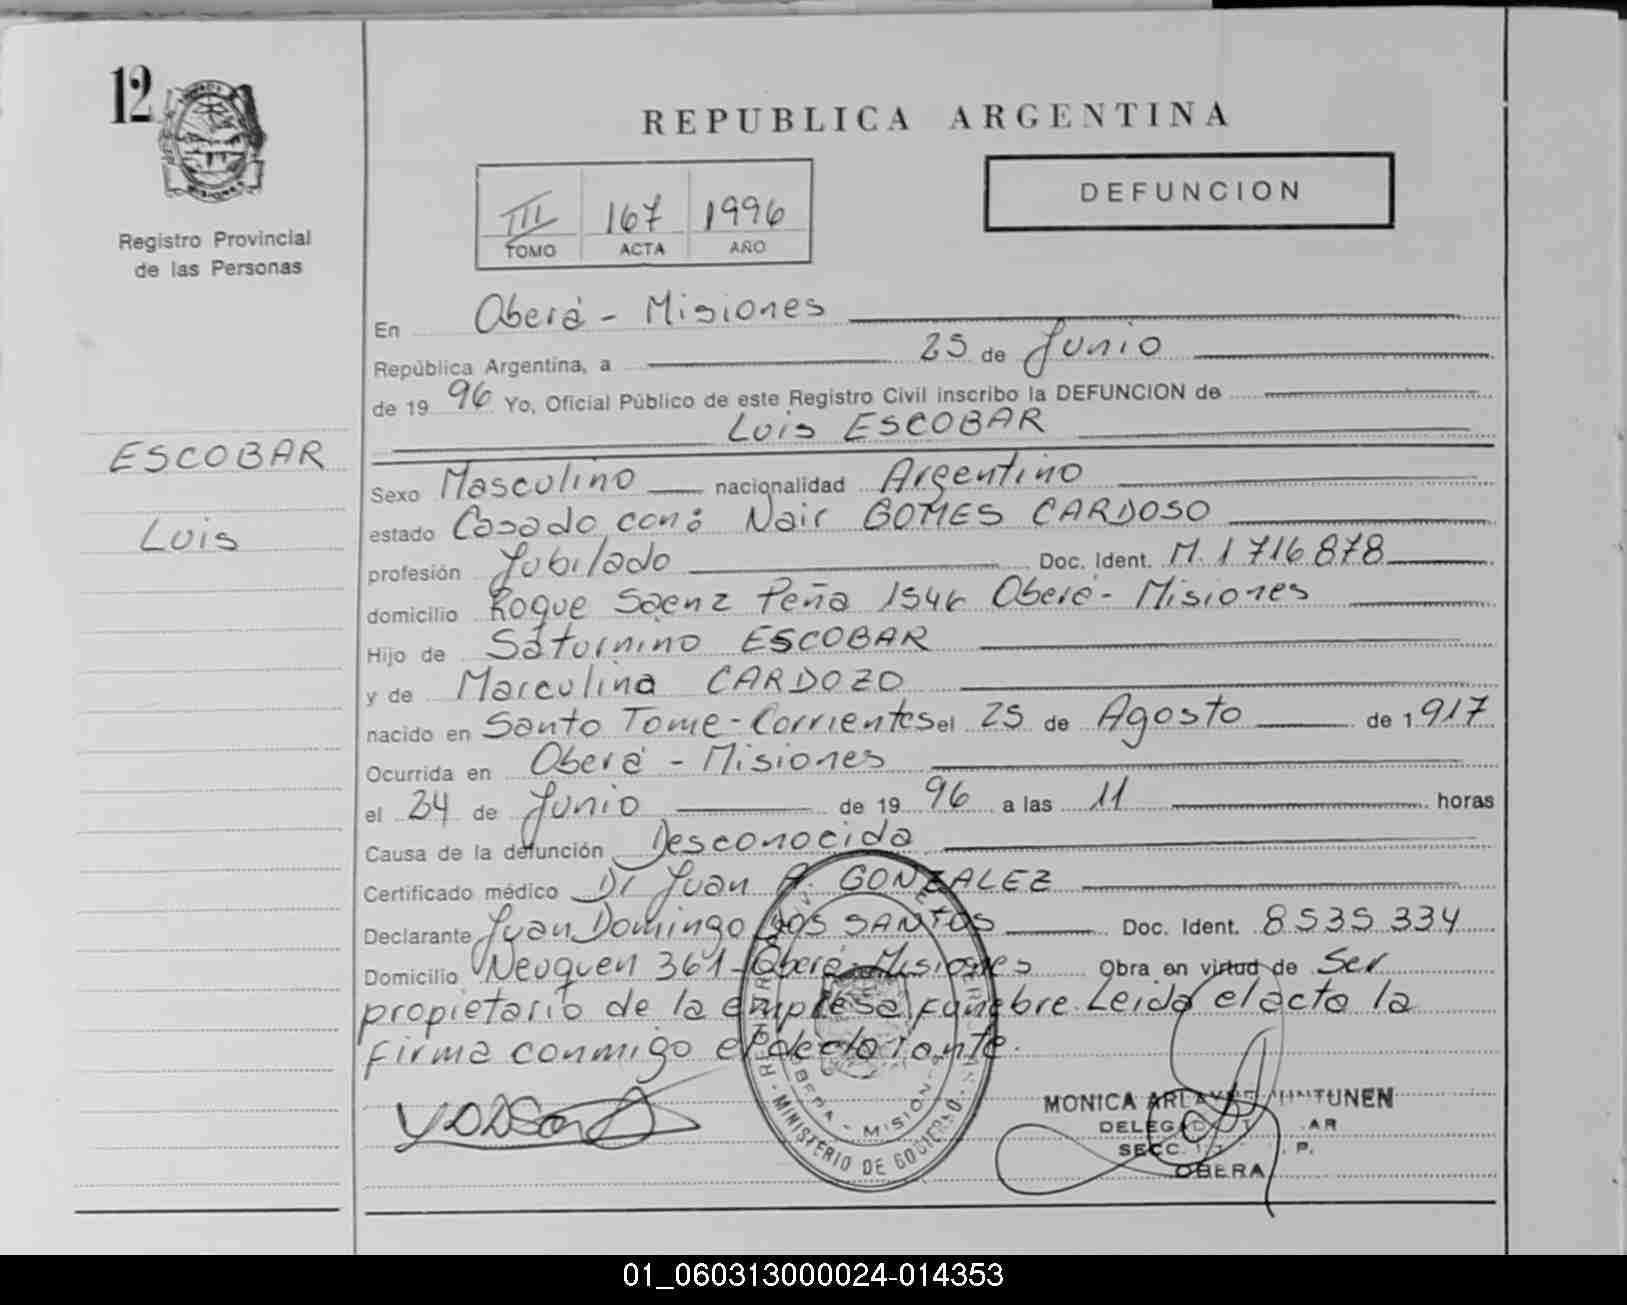 12
REPUBLICA ARGENTINA
DEFUNCION
III 167 1996
TOMO ACTA AÑO
Registro Provincial
de las Personas
ESCOBAR
Luis
En Oberá - Misiones
República Argentina, a 25 de Junio
de 19 96 Yo, Oficial Público de este Registro Civil inscribo la DEFUNCION de
Luis ESCOBAR
Sexo Masculino nacionalidad Argentino
estado Casado con: Nair GOMES CARDOSO
profesión Jubilado Doc. Ident. M. 1 716 878
domicilio Roque Saenz Peña 1546 Oberá - Misiones
Hijo de Saturnino ESCOBAR
y de Marculina CARDOZO
nacido en Santo Tome - Corrientes el 25 de Agosto de 1 917
Ocurrida en Oberá - Misiones
el 24 de Junio de 19 96 a las 11 horas
Causa de la defunción Desconocida
Certificado médico Dr Juan A. GONZALEZ
Declarante Juan Domingo DOS SANTOS Doc. Ident. 8535 334
Domicilio Neuquen 361 - Oberá - Misiones Obra en virtud de Ser
propietario de la empresa Funebre. Leida el acta la
firma conmigo el declarante.
MINISTERIO DE GOBIERNO
OBERA - MISIONES
MONICA
SECC.
OBERA
01_060313000024-014353